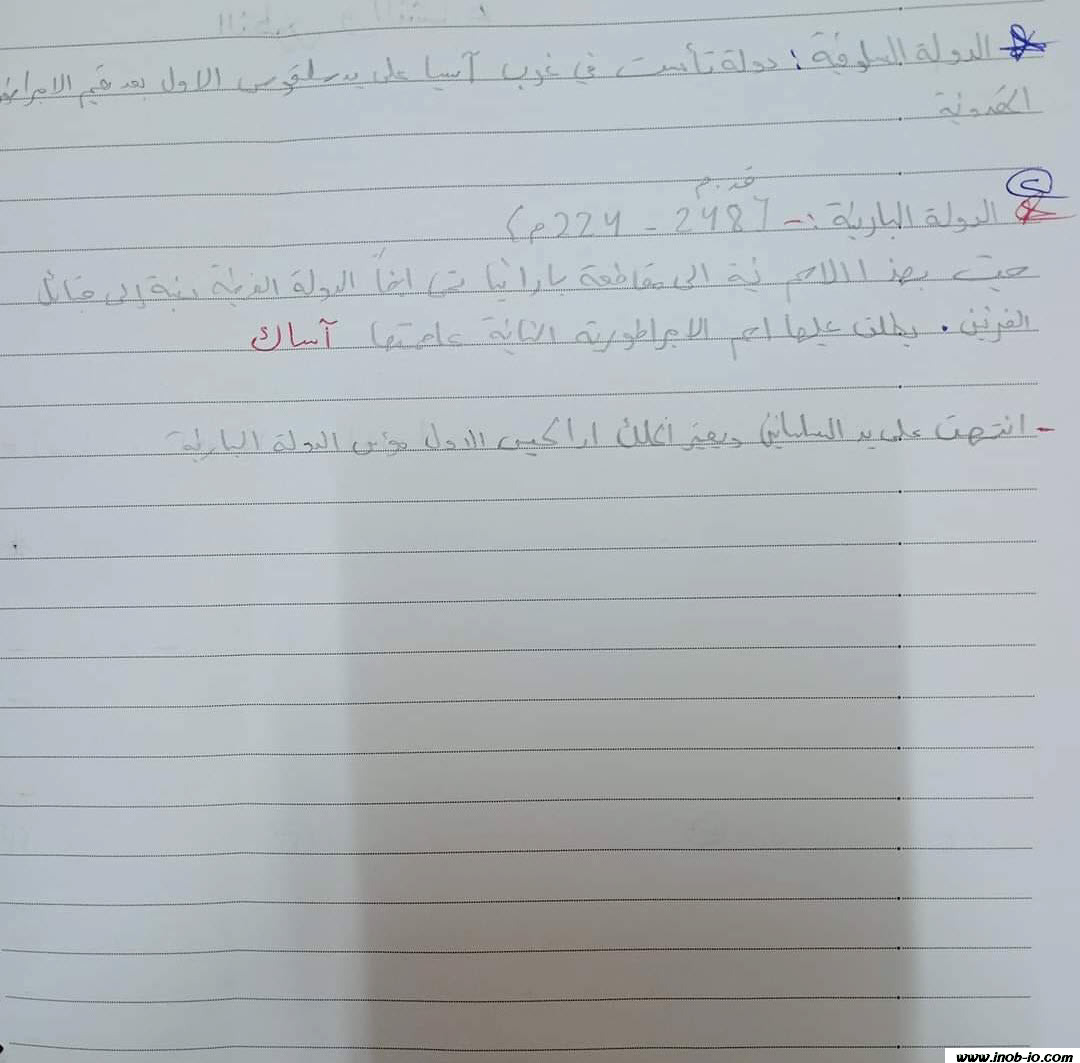 الدولة السلوقية : دولة تأسست في غرب آسيا على يد سلوقس الاول بعد تقسيم الامبراطو
المقدونية
② الدولة البارثية :- (248 ق.م - 224 م)
سميت بهذا الاسم نسبة الى مقاطعة بارثيا تسمى ايضاً الدولة الفرثية نسبة الى قبائل
الفرثيين . يطلق عليها اسم الامبراطورية الثانية عاصمتها آساك
- انتهت على يد الساسانيين ويعتبر الملك اراكيس الاول مؤسس الدولة البارثية
www.inob-io.com